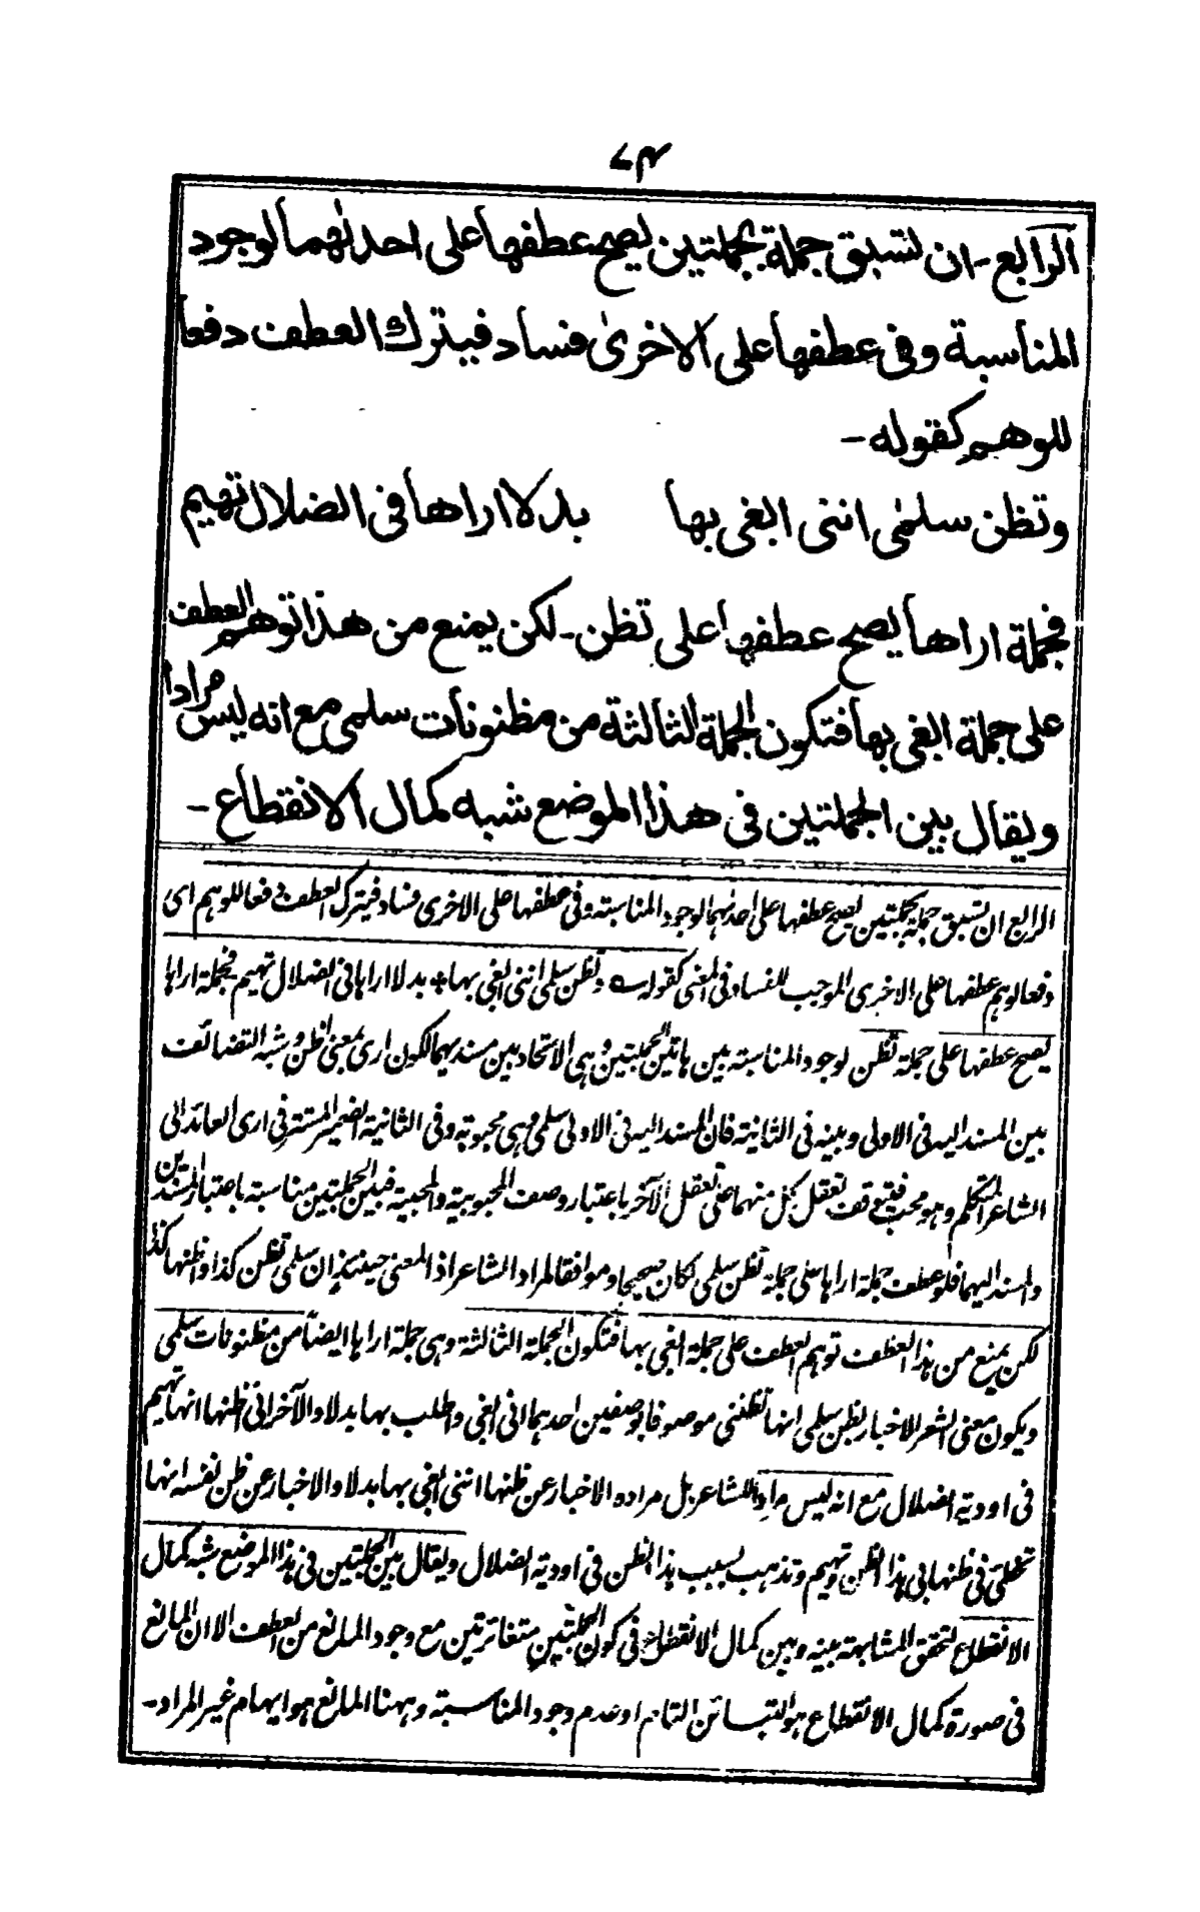 ٧٣
الرابع - ان تسبق جملة بجملتين يصح عطفها على احداهما لوجود
المناسبة وفى عطفها على الاخرى فساد فيترك العطف دفعا
للوهم كقوله -
وتظن سلمى اننى ابغى بها بدلا اراها فى الضلال تهيم
فجملة اراها يصح عطفها على تظن - لكن يمنع من هذا توهم العطف
على جملة ابغى بها فتكون الجملة الثالثة من مظنونات سلمى مع انه ليس مرادا
ويقال بين الجملتين فى هذا الموضع شبه كمال الانقطاع -
الرابع ان تسبق جملة بجملتين يصح عطفها على احدٰىهما لوجود المناسبة وفى عطفها على الاخرى فساد فيترك العطف دفعا للوهم اى
دفعا لوهم عطفها على الاخرى الموجب للفساد فى المعنى كقوله ؎ وتظن سلمى اننى ابغى بها * بدلا اراها فى الضلال تهيم فجملة اراها
يصح عطفها على جملة تظن لوجود المناسبة بين هاتين الجملتين وهى الاتحاد بين مسنديهما لكون ارى بمعنى اظن وشبه التضائف
بين المسند اليه فى الاولى وبينه فى الثانية فان المسند اليه فى الاولى سلمى وهى محبوبة وفى الثانية الضمير المستتر فى ارى العائد الى
الشاعر المتكلم وهو محب فيتوقف تعقل كل منهما على تعقل الآخر باعتبار وصف المحبوبية والمحبية فبين الجملتين مناسبة باعتبار المسندين
والمسند اليهما فلو عطف جملة اراها على جملة تظن سلمى لكان صحيحا وموافقا لمراد الشاعر اذ المعنى حينئذ ان سلمى تظن كذا واظنها كذا
لكن يمنع من هذا العطف توهم العطف على جملة ابغى بها فتكون الجملة الثالثة وهى جملة اراها ايضا من مظنونات سلمى
ويكون معنى الشعر الاخبار بظن سلمى انها تظننى موصوفا بوصفين احدهما انى ابغى واطلب بها بدلا والآخر انى اظنها انها تهيم
فى اودية الضلال مع انه ليس مرادا للشاعر بل مراده الاخبار عن ظنها اننى ابغى بها بدلا والاخبار عن ظن نفسه انها
تخطئ فى ظنها بى هذا الظن وتهيم وتذهب بسبب هذا الظن فى اودية الضلال ويقال بين الجملتين فى هذا الموضع شبه كمال
الانقطاع لتحقق المشابهة بينه وبين كمال الانقطاع فى كون الجملتين متغائرتين مع وجود المانع من العطف الا ان المانع
فى صورة كمال الانقطاع هو التبائن التام او عدم وجود المناسبة وههنا المانع هو ايهام غير المراد -